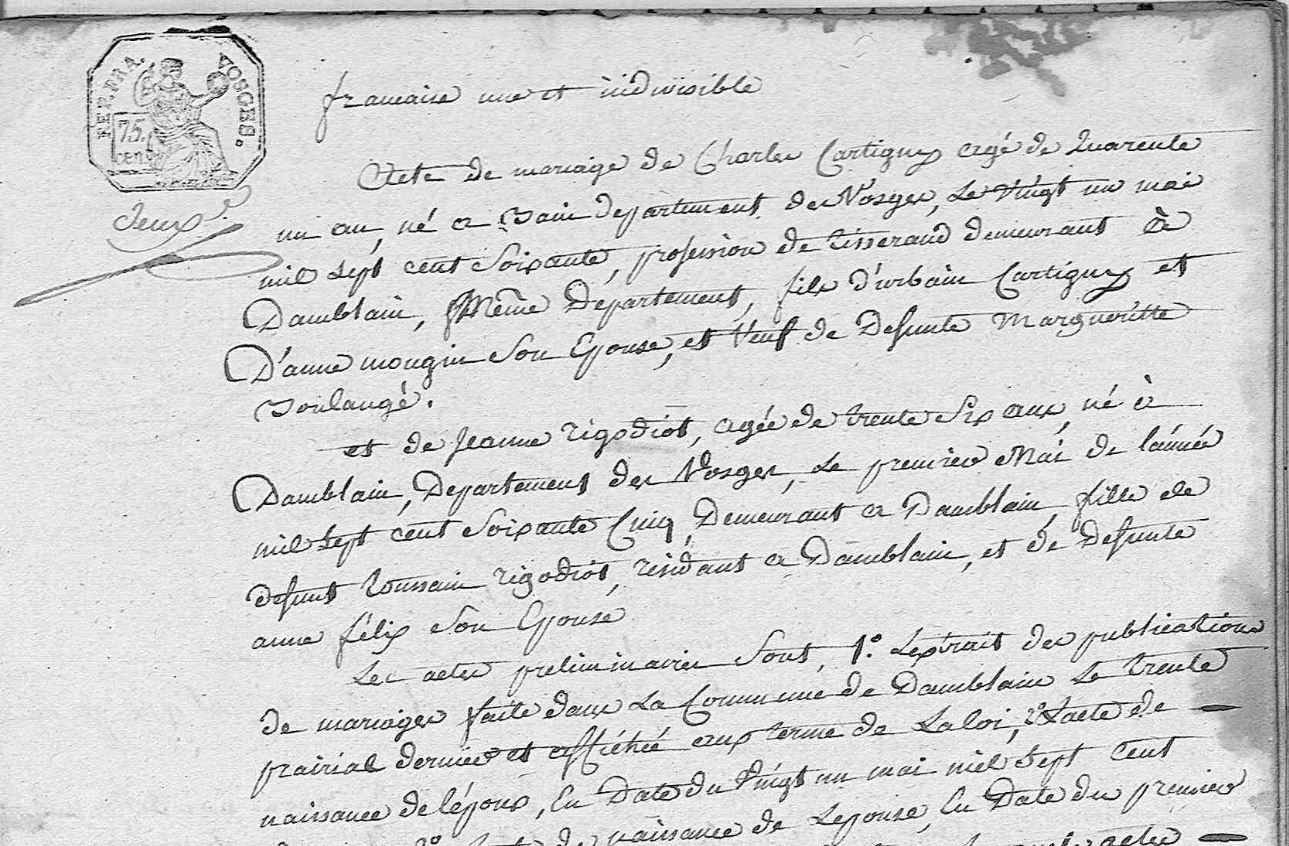 REP. FRA.
VOSGES.
75.
CEN.
deux.e
francaise une et indivisible
Acte de mariage de Charles Cartigny agé de Quarente
un an, né a Sain departement des Vosges, le vingt un mai
mil sept cent Soixante, profession de tisserand demeurant à
Damblain, Même Département, fils d'urbain Cartigny et
D'anne mougin Son Epouse, et Veuf de Defunte Margueritte
Boulangé.
et de Jeanne rigodiot, agée de trente Six ans, né à
Damblain, Departement des Vosges, le premier Mai de l'année
mil Sept cent Soixante Cinq, Demeurant a Damblain, fille de
defunt toussain rigodiot, residant a Damblain, et de Defunte
anne félix Son Epouse
Les actes preliminaires Sont, 1.° Lextrait des publications
de mariages faite dans La Commune de Damblain Le trente
prairial dernier et affichée aux terme de La loi, 2° Lacte de
naissance de lépoux, En Date du Vingt un mai mil Sept cent
de naissance de Lepouse, En Date du premier
actes